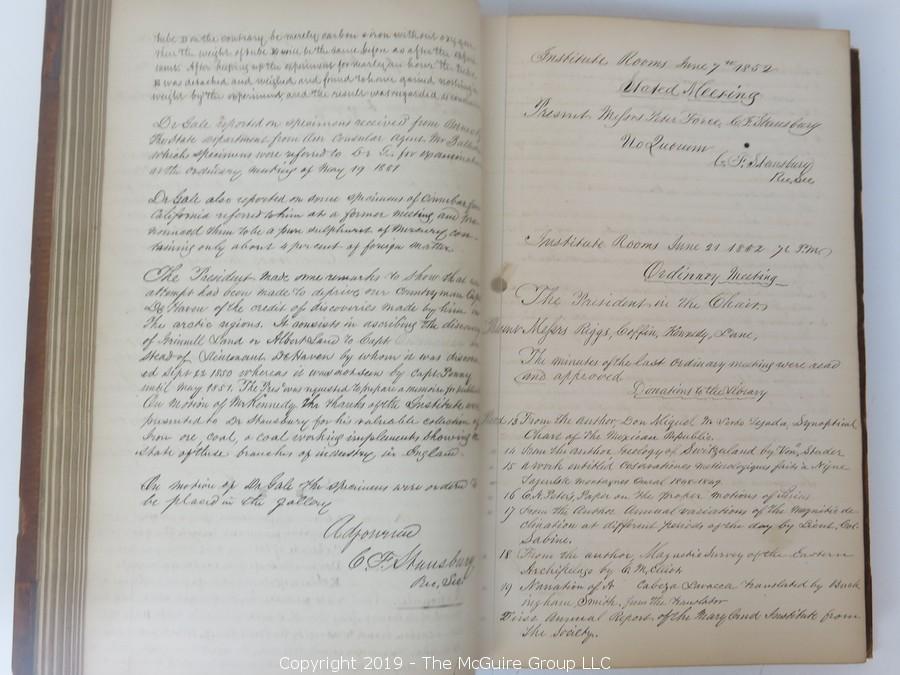 tube B on the contrary, be merely carbon & iron without oxygen
then the weight of tube B will be the same before as after the
. After keeping up the experiment for nearly an hour the tube
B was detached and weighed and found to have gained nothing in
weight by the experiment, and the result was regarded as conclusive
Dr Gale reported on specimens received from
the State Department from our Consular Agent, Mr
which specimens were referred to Dr G. for examination
at the ordinary meeting of May 19 1851
Dr Gale also reported on some specimens of Cinnebar from
California referred to him at a former meeting and pro
nounced them to be a pure sulphuret of mercury con-
taining only about 4 per cent of foreign matter
The President made some remarks to show that an
attempt had been made to deprive our Countryman Capt
De Haven of the credit of discoveries made by him in
the arctic regions. It consists in ascribing the discovery
of Grinnell Land or Albert Land to Capt
stead of Lieutenant De Haven by whom it was discover
ed Sept 22 1850 whereas it was not seen by Capt Penny
until May 1851. The Pres was requested to prepare a memoir for
On motion of Mr Kennedy the thanks of the Institute were
presented to Dr Stansbury for his valuable collection of
iron ore, coal, & coal working implements showing the
state of these branches of industry in England.
On motion of Dr Gale the specimens were ordered to
be placed in the gallery
Adjourned
C. F. Stansbury
Rec. Sec
Institute Rooms June 7th 1852
Stated Meeting
Present Messrs Peter Force, C. F. Stansbury
No Quorum
C. F. Stansbury
Rec, Sec
Institute Rooms June 21 1852 7½ P.M.
Ordinary Meeting
The President in the Chair
Present Messrs Riggs, Coffin, Kennedy, Lane,
The minutes of the last ordinary meeting were read
and approved
Donations to the Library
13 From the author, Don Miguel M Lerdo Tejada, Synoptical
Chart of the Mexican Republic.
14 From the author Geology of Switzerland by Von Studer
15 A work entitled Observations meteorologiques faits a Nijne
Taguilsk montagnes Oural
16 C. H. Peters, Paper on the proper motions of Sirius
17 From the Author Annual variations of the Magnetic de
clination at different periods of the day by Lieut. Col.
Sabine.
18 From the author, Magnetic Survey of the Eastern
Archipelago by C. M. Elliot
19 Narration of A Cabeza Lavacca translated by Buck
ingham Smith, from the translator
20 First Annual Report of the Maryland Institute from
the Society.
Copyright 2019 - The McGuire Group LLC